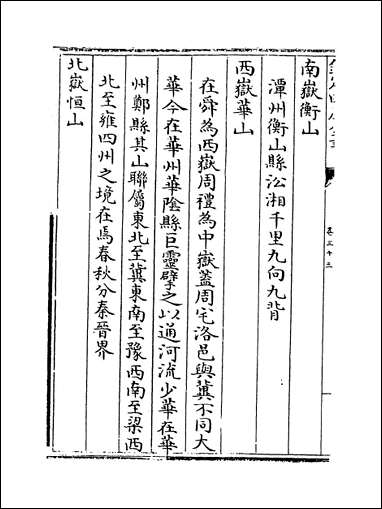 南嶽衡山
潭州衡山縣沿湘千里九向九背
西嶽華山
在舜為西嶽周禮為中嶽蓋周宅洛邑與冀不同大
華今在華州華陰縣巨靈擘之以通河流少華在華
州鄭縣其山聯屬東北至冀東南至豫西南至梁西
北至雍四州之境在焉春秋分秦晉界
北嶽恒山